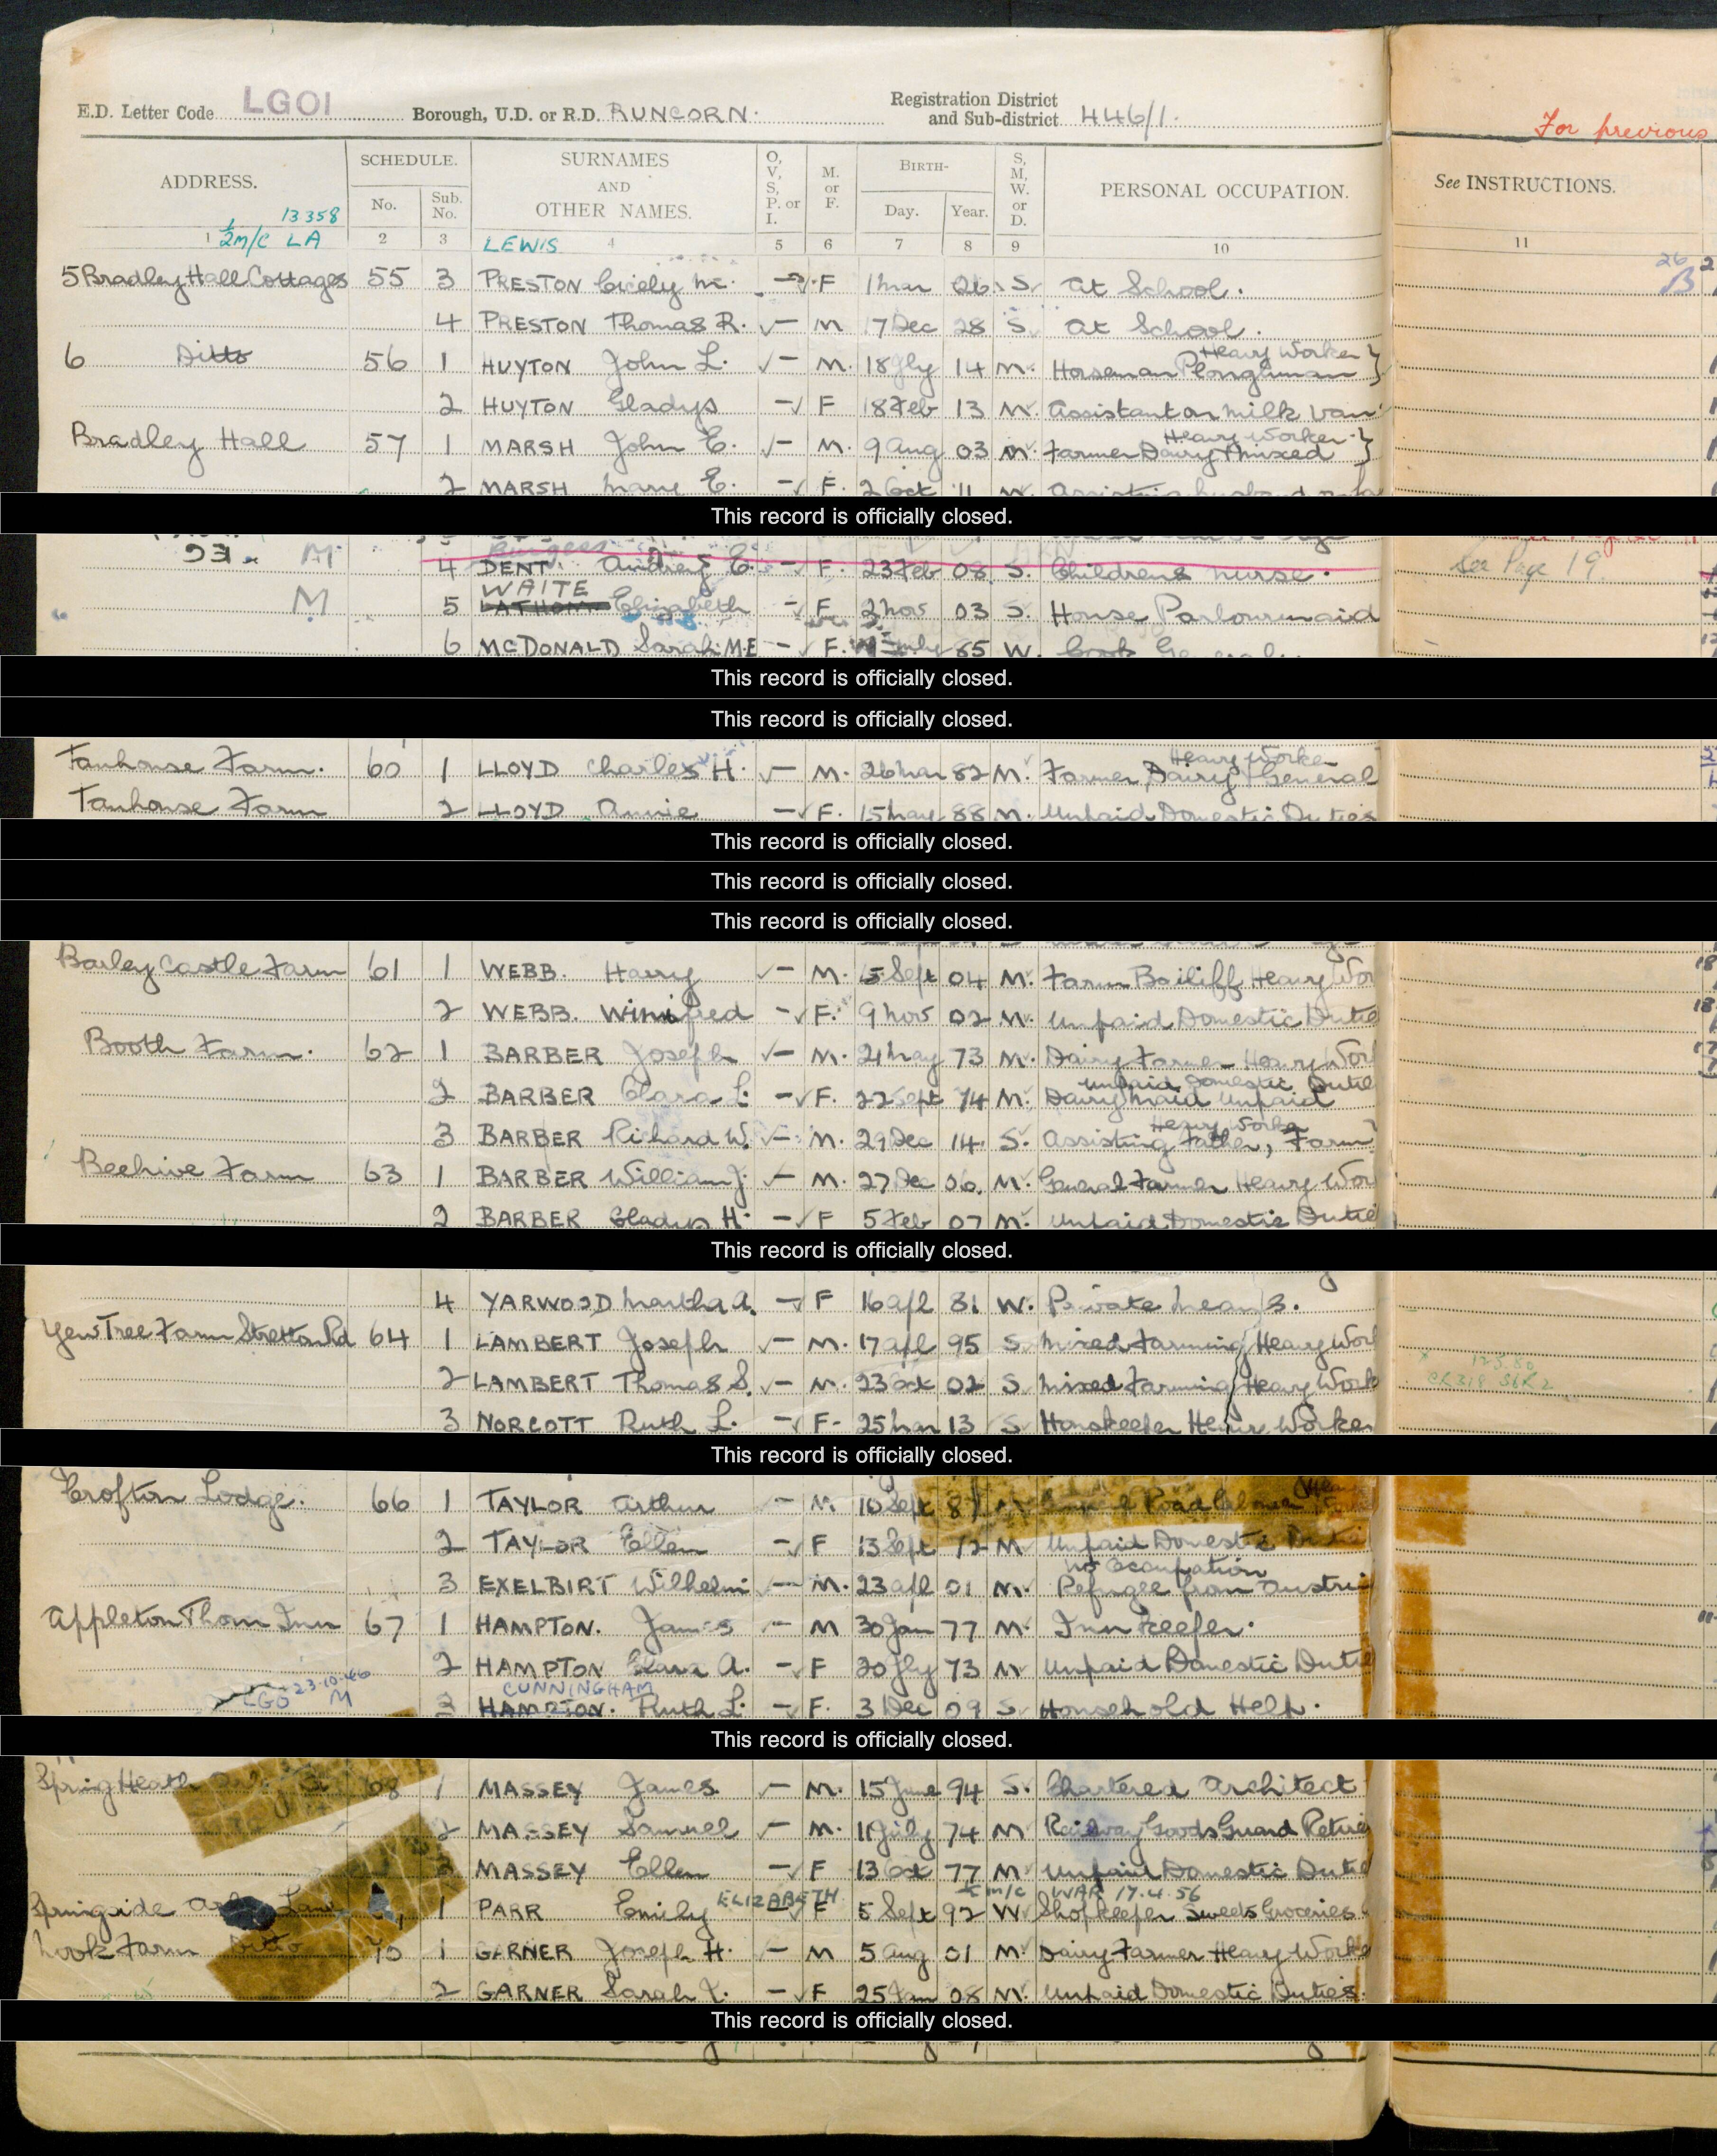 E.D. Letter Code LGOI Borough, U.D. or R.D. RUNCORN. Registration District and Sub-district 446/1.
For previous
ADDRESS. SCHEDULE. No. Sub. No. SURNAMES AND OTHER NAMES. O, V, S, P. or I. M. or F. BIRTH- Day. Year. S, M, W. or D. PERSONAL OCCUPATION. See INSTRUCTIONS.
13358
1 2 3 4 5 6 7 8 9 10 11
½m/c LA LEWIS
5 Bradley Hall Cottages 55 3 PRESTON Cicely M. - F 1 Mar 26 S at School.
4 PRESTON Thomas R. - M 17 Dec 28 S at School.
6 Ditto 56 1 HUYTON John L. - M. 18 Jly 14 M. Horseman Ploughman Heavy Worker }
2 HUYTON Gladys - F 18 Feb 13 M. Assistant on Milk Van
Bradley Hall 57 1 MARSH John E. - M. 9 Aug 03 M. Farmer Dairy & Mixed Heavy Worker }
2 MARSH Mary E. - F. 2 Oct 11 M.
This record is officially closed.
Burgess
M 4 DENT. Audrey E. - F. 23 Feb 08 S. Childrens Nurse. See Page 19.
WAITE
M 5 Elizabeth - F 2 Nov 03 S. House Parlourmaid
6 MCDONALD Sarah M.E - F. 85 W. Cook General
This record is officially closed.
This record is officially closed.
Tanhouse Farm. 60 1 LLOYD Charles H. - M. 26 Mar 82 M. Farmer, Dairy & General Heavy Worker
Tanhouse Farm 2 LLOYD Annie - F. 15 May 88 M. Unpaid Domestic Duties
This record is officially closed.
This record is officially closed.
This record is officially closed.
Barley Castle Farm 61 1 WEBB. Harry - M. 5 Sept 04 M. Farm Bailiff Heavy Wor
2 WEBB. Winifred - F. 9 Nov 02 M. Unpaid Domestic Dutie
Booth Farm. 62 1 BARBER Joseph - M. 21 May 73 M. Dairy Farmer Heavy Wor
Unpaid Domestic Dutie
2 BARBER Clara L. - F. 22 Sept 74 M. Dairy Maid Unpaid
Heavy Worker
3 BARBER Richard W. - M. 29 Dec 14. S. Assisting Father, Farm
Beehive Farm 63 1 BARBER William J. - M. 27 Dec 06. M. General Farmer Heavy Wor
2 BARBER Gladys H. - F 5 Feb 07 M. Unpaid Domestic Dutie
This record is officially closed.
4 YARWOOD Martha A. - F 16 Apl 81 W. Private Means.
Yew Tree Farm Stretton Rd 64 1 LAMBERT Joseph - M. 17 Apl 95 S. Mixed Farming Heavy Wor
2 LAMBERT Thomas S. - M. 23 Oct 02 S. Mixed Farming Heavy Work
3 NORCOTT Ruth L. - F. 25 Mar 13 S Housekeeper Heavy Worker
This record is officially closed.
Crofton Lodge. 66 1 TAYLOR Arthur - M 10 Sept 87 M Road Labourer
2 TAYLOR Ellen - F 13 Sept 12 M Unpaid Domestic Dutie
No occupation
3 EXELBIRT Wilhelm - M. 23 Apl 01 M. Refugee from Austria
Appleton Thorn Inn 67 1 HAMPTON. James - M 30 Jan 77 M Inn Keeper.
2 HAMPTON Clara A. - F 20 Jly 73 M Unpaid Domestic Dutie
LGO 23.10.46 M CUNNINGHAM
3 HAMPTON. Ruth L. - F. 3 Dec 09 S. Household Help.
This record is officially closed.
Spring Heath 68 1 MASSEY James. - M. 15 June 94 S. Chartered Architect
2 MASSEY Samuel - M. 11 July 74 M Railway Goods Guard Retired
3 MASSEY Ellen - F 13 Oct 77 M Unpaid Domestic Dutie
ELIZABETH m/c WAR 17.4.56
Springside Lane 1 PARR Emily - F 5 Sept 92 W. Shopkeeper Sweets Groceries
Nook Farm Ditto 70 1 GARNER Joseph H. - M 5 Aug 01 M. Dairy Farmer Heavy Worke
2 GARNER Sarah J. - F 25 Jan 08 M. Unpaid Domestic Duties.
This record is officially closed.